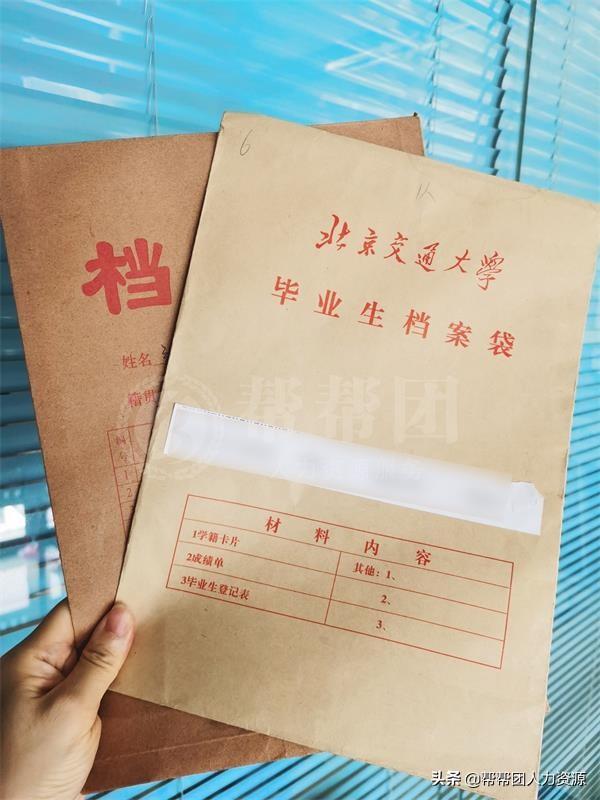 6
北京交通大学
毕业生档案袋
档
姓名
籍贯
帮帮团
材料内容
1学籍卡片
其他：1、
2成绩单
2、
3毕业生登记表
3、
头条 @帮帮团人力资源